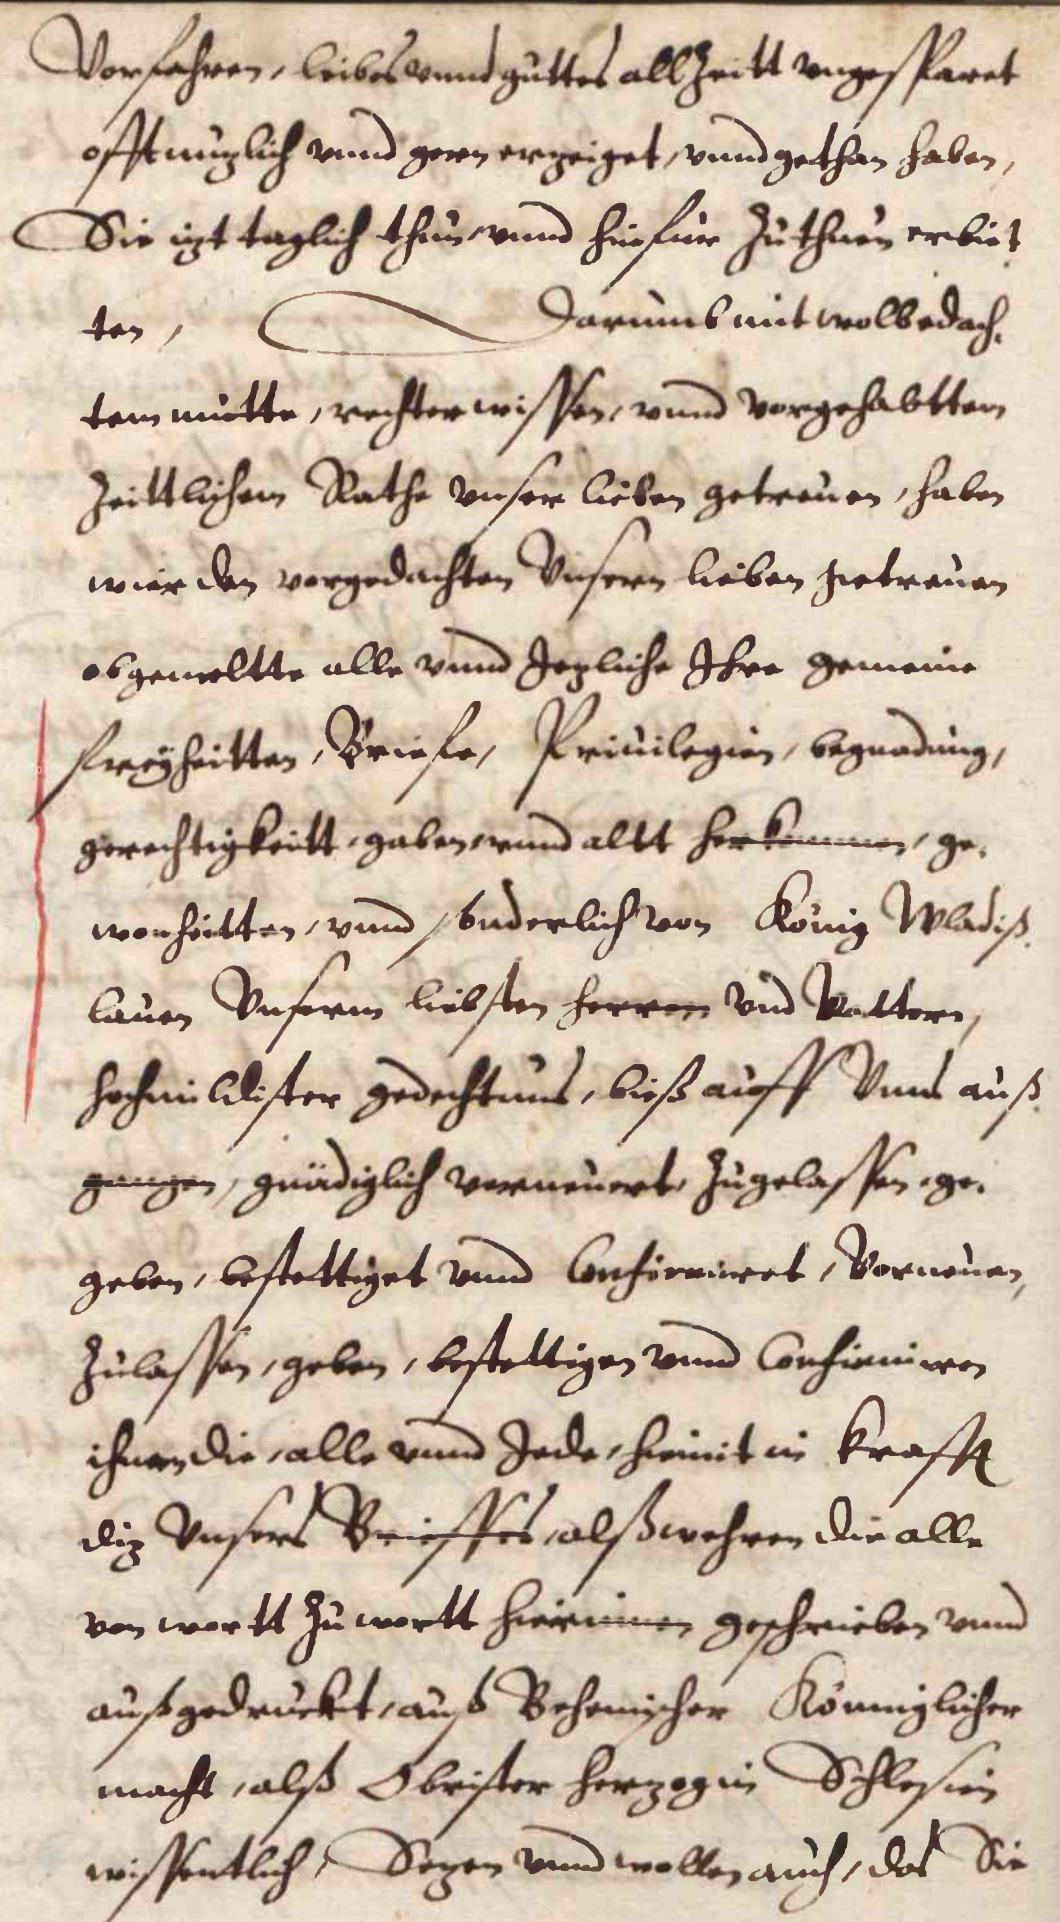 Vorfahren, leibes vnnd guttes allZeitt vngesparet
offt nuzlich vnnd gern erzeiget, vnnd gethan haben,
Sie izt taglich thun, vnnd hinfür Zuthuen erbiet
ten, Darumb mit wolbedach,
tem mutte, rechter wissen, vnnd vorgehabttem
Zeittlichem Rathe vnser lieben getreuen, haben
wier den vorgedachten Vnsern lieben getreuen
obgemeltte alle vnnd Jezliche Ihre gemeine
freyheitten, Briefe, Priuilegien, begnadung,
gerechtigkeitt, gaben, vnnd altt herkommen, ge,
wonheitten, vnnd sonderlich von König Wladiß,
lauen Vnserm liebsten herren vnd Vattern,
hochmildister gedechtnus, bieß auff Vnns auß,
gangen, gnädiglich verneuert, Zugelassen, ge,
geben, bestettiget vnnd Confirmiret, Vorneuen,
Zulassen, geben, bestettigen vnnd Confirmiren
ihnen die, alle vnnd Jede, hiemit in Krafft
diz Vnsers Brieffes, alß wehren die alle
von wortt Zu wortt hierinnen geschrieben vnnd
außgedruckt, auß Behemischer Königlicher
macht, alß Obrister herzog in Schlesien
wissentlich, Sezen vnnd wollen auch, das Sie